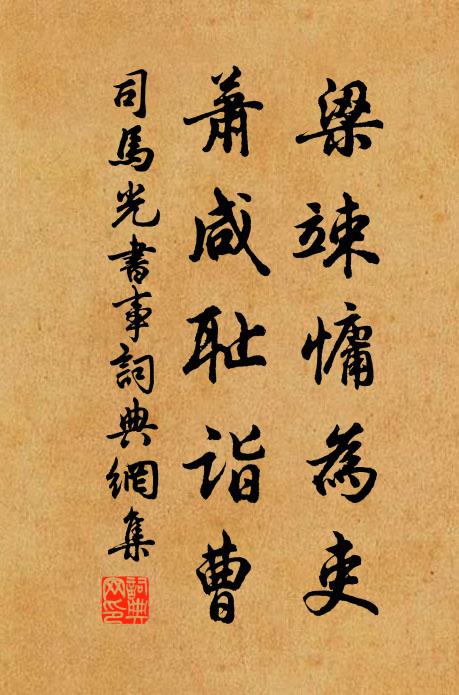 梁竦慵為吏
蕭咸耻詣曹
司馬光書事詞典網集
詞典网印